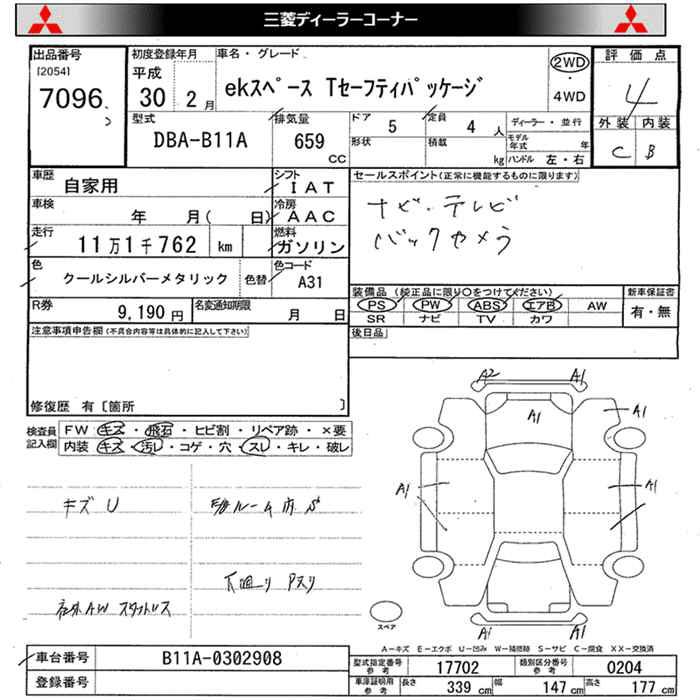 三菱ディーラーコーナー
出品番号
[2054]
7096
初度登録年月
平成
30 2月
車名・グレード
ekスペース Tセーフティパッケージ
2WD
・
4WD
評価点
4
外装 内装
C B
型式
DBA-B11A
排気量
659
CC
ドア 5
定員 4 人
形状
積載 kg
ディーラー・並行
モデル年式 年
ハンドル 左・右
車歴 自家用
シフト IAT
車検 年 月( 日)
冷房 AAC
走行 11万1千762 km
燃料 ガソリン
色 クールシルバーメタリック 色替
色コード A31
R券 9,190円
名変通知期限 月 日
セールスポイント(正常に機能するものに限ります)
ナビ・テレビ
バックカメラ
装備品 (純正品に限り〇をつけてください)
PS PW ABS エアB AW
SR ナビ TV カワ
新車保証書
有・無
後日品
注意事項申告欄(不具合内容等は具体的に記入して下さい)
修復歴 有[箇所 ]
検査員記入欄
FW キズ・飛石・ヒビ割・リペア跡・×要
内装 キズ・汚レ・コゲ・穴・スレ・キレ・破レ
キズ U
ルーム内
下廻り Pスリ
社外AW スタットレス
A2 A1
A1
A1
A1
A1
A1 A1
スペア
A-キズ E-エクボ U-凹み W-補修跡 S-サビ C-腐食 XX-交換済
車台番号 B11A-0302908
登録番号
型式指定番号 参考 17702
類別区分番号 参考 0204
車庫証明用 参考 長さ 339cm 幅 147cm 高さ 177cm